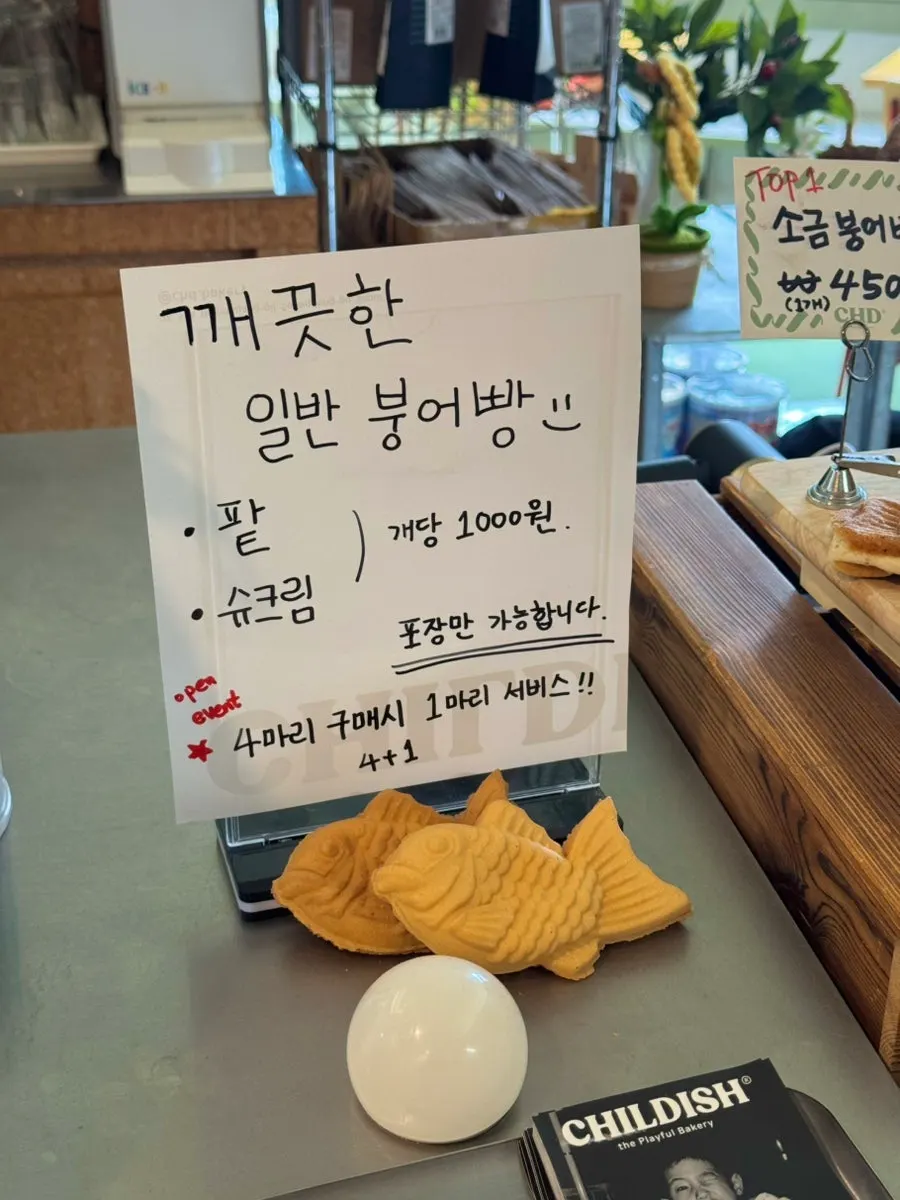 깨끗한
일반 붕어빵
• 팥
• 슈크림
개당 1000원.
포장만 가능합니다.
open
event
4마리 구매시 1마리 서비스!!
4+1
TOP 1
소금 붕어
₩ 450
(1개)
CHD
CHILDISH®
the Playful Bakery